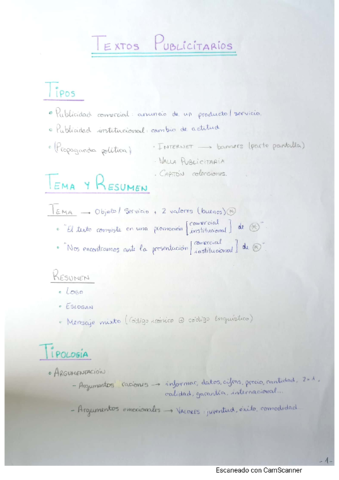 TEXTOS PUBLICITARIOS
TIPOS
Publicidad comercial anuncio de un producto/servicio
Publicidad institucional cambio de actitud
(Propaganda política) - INTERNET → banners (parte pantalla)
- VALLA PUBLICITARIA
- CARTÓN
TEMA Y RESUMEN
TEMA → Objeto/Servicio + 2 valores (buenos) ⓧ
"El texto consiste en una promoción [comercial institucional] de ⓧ"
"Nos encontramos ante la presentación [comercial institucional] de ⓧ"
RESUMEN
LOGO
ESLOGAN
Mensaje mixto (código icónico código lingüístico)
TIPOLOGÍA
ARGUMENTACIÓN
- Argumentos racionales → informar, datos, cifras, precio, cantidad, 2x1,
calidad, garantía, internacional...
- Argumentos emocionales → valores, juventud, éxito, comodidad
- 1 -
Escaneado con CamScanner